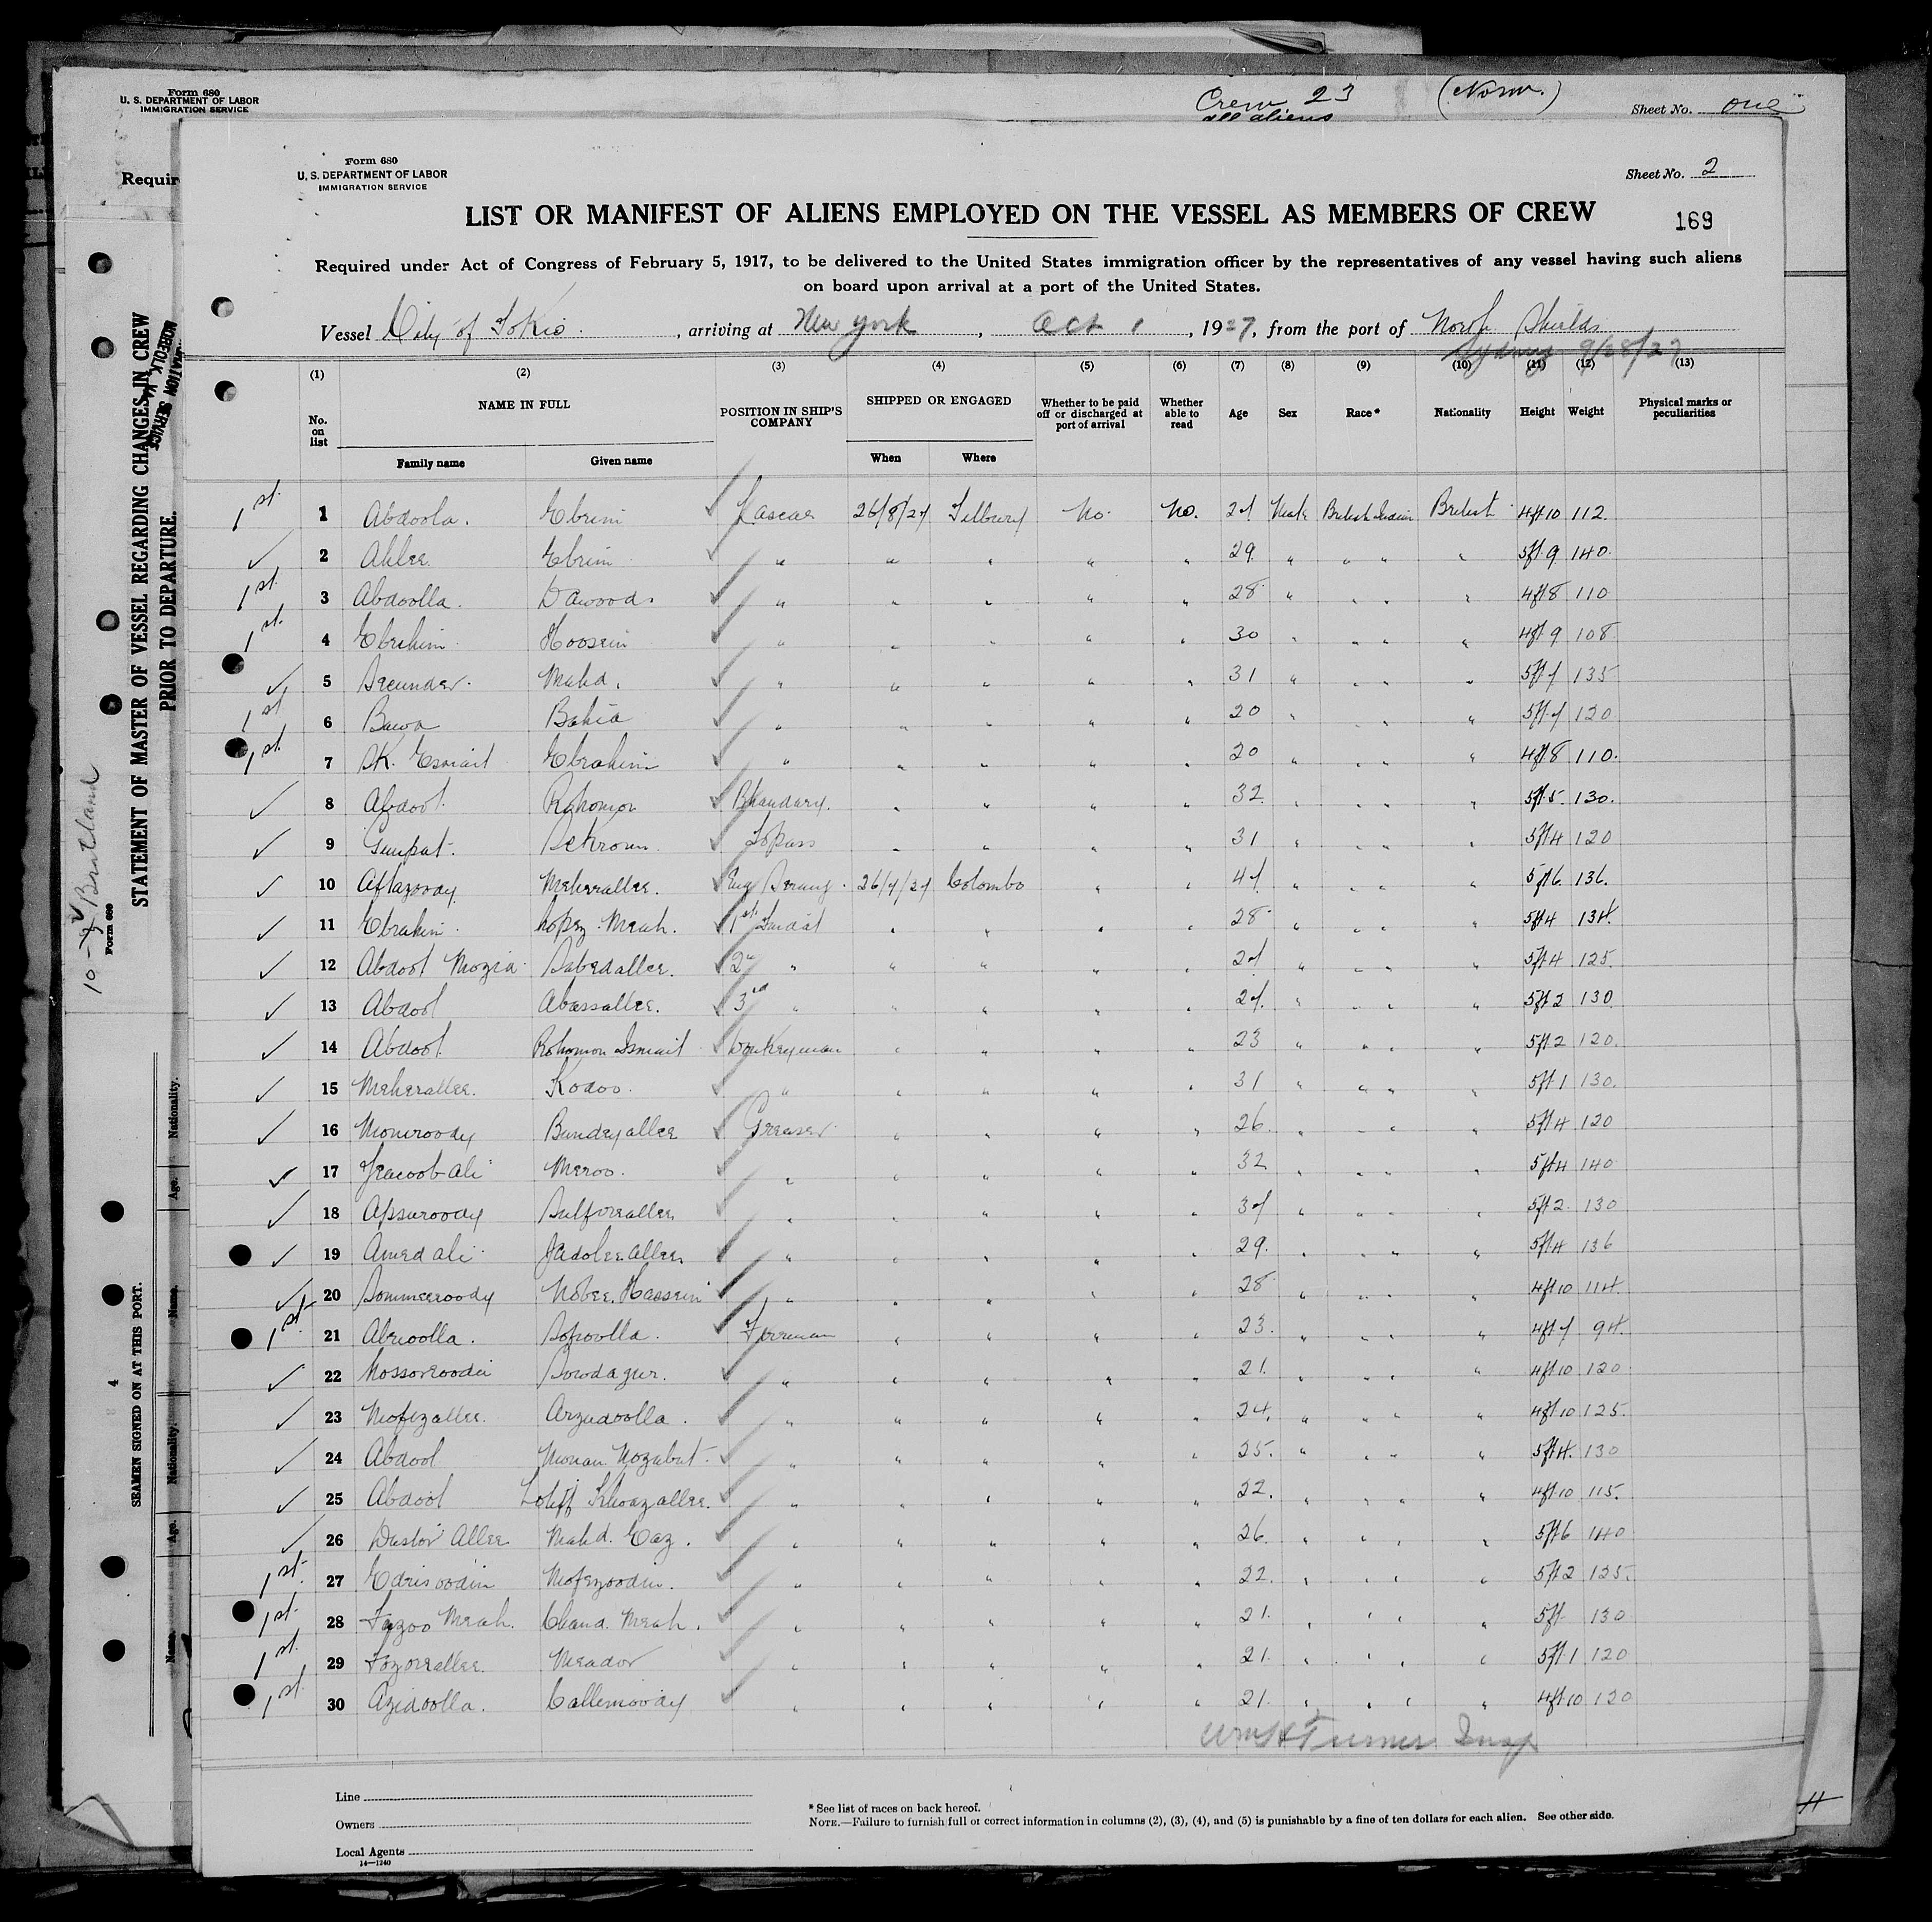 Form 680
U. S. DEPARTMENT OF LABOR
IMMIGRATION SERVICE
Crew 23
all aliens
(Norw.)
Sheet No. one
Form 680
U. S. DEPARTMENT OF LABOR
IMMIGRATION SERVICE
Sheet No. 2
LIST OR MANIFEST OF ALIENS EMPLOYED ON THE VESSEL AS MEMBERS OF CREW
169
Required under Act of Congress of February 5, 1917, to be delivered to the United States immigration officer by the representatives of any vessel having such aliens
on board upon arrival at a port of the United States.
Vessel City of Tokio. , arriving at New York , Oct 1 , 1927, from the port of North Shields
Sydney 9/28/27
(1) (2) (3) (4) (5) (6) (7) (8) (9) (10) (11) (12) (13)
No. on list NAME IN FULL POSITION IN SHIP'S COMPANY SHIPPED OR ENGAGED Whether to be paid off or discharged at port of arrival Whether able to read Age Sex Race* Nationality Height Weight Physical marks or peculiarities
Family name Given name When Where
1st. 1 Abdoola. Ebrim Lascar 26/8/27 Tilbury No. No. 27 Male British Indian British 4ft10 112.
✓ 2 Ahlee. Ebrim " " " " " 29. " " " " 5ft.9. 140.
1st. 3 Abdoolla. Dawood. " " " " " 28 " " " " 4ft8 110
1st. 4 Ebrahim. Hoosein " " " " " 30 " " " " 4ft 9 108.
✓ 5 Secunder. Mahd. " " " " " 31 " " " " 5ft7 135
1st 6 Bawa Bahia " " " " " 20 " " " " 5ft.7 120
1st. 7 SK. Esmail Ebrahim " " " " " 20 " " " " 4ft8 110.
✓ 8 Abdool. Rohomon Bhandary. " " " " 32. " " " " 5ft.5. 130.
✓ 9 Gunpat. Topass " " " " 31 " " " " 5ft4 120
✓ 10 Aftazoody Meherallee. Eng Serang. 26/7/27 Colombo " " 47 " " " " 5ft6. 136.
✓ 11 Ebrahim. Meah. 1st Tindal " " " " 28 " " " " 5ft4 134.
✓ 12 Abdool Mozid Sabedallee. 2nd " " " " " 27 " " " " 5ft4 125.
✓ 13 Abdool Abassallee. 3rd " " " " " 27. " " " " 5ft2 130
✓ 14 Abdool. Rohomon Ismail Donkeyman " " " " 23 " " " " 5ft2 120.
✓ 15 Meherallee. Kodoo. " " " " " 31 " " " " 5ft.1 130.
✓ 16 Moniroody Bundeyallee Greaser. " " " " 26. " " " " 5ft4 120
✓ 17 Yeacoob Ali Meroo. " " " " " 32 " " " " 5ft4 140
✓ 18 Apsuroody " " " " " 37 " " " " 5ft2. 130
✓ 19 Amed ali. Jadoleeallee " " " " " 29. " " " " 5ft4 136
✓ 20 Sommeeroody Nobee. Hassein " " " " " 28 " " " " 4ft10 114.
1st 21 Fireman " " " " 23. " " " " 4ft7 94.
✓ 22 Sowdagur. " " " " " 21. " " " " 4ft10 120
✓ 23 Mofizallee. Arzudoolla. " " " " " 24. " " " " 4ft.10 125.
✓ 24 Abdool " " " " " 25. " " " " 5ft4. 130
✓ 25 Abdool " " " " " 22. " " " " 4ft10 115.
✓ 26 Allee Mahd. Eaz. " " " " " 26. " " " " 5ft6 140
1st. 27 Edrisoodin Mofezoodin. " " " " " 22. " " " " 5ft2 125.
1st. 28 Fazoo Meah. Chand. Meah. " " " " " 21. " " " " 5ft 130
1st. 29 Fozorallee. Meador " " " " " 21. " " " " 5ft.1 120
1st. 30 Azidoolla. Callemoody " " " " " 21. " " " " 4ft.10 120
Wm H Turner Insp
Line
Owners
Local Agents
14—1240
* See list of races on back hereof.
NOTE.—Failure to furnish full or correct information in columns (2), (3), (4), and (5) is punishable by a fine of ten dollars for each alien. See other side.
Requir
STATEMENT OF MASTER OF VESSEL REGARDING CHANGES IN CREW
PRIOR TO DEPARTURE.
Form 680
SEAMEN SIGNED ON AT THIS PORT.
4
Name. Age. Nationality. Name. Age. Nationality.